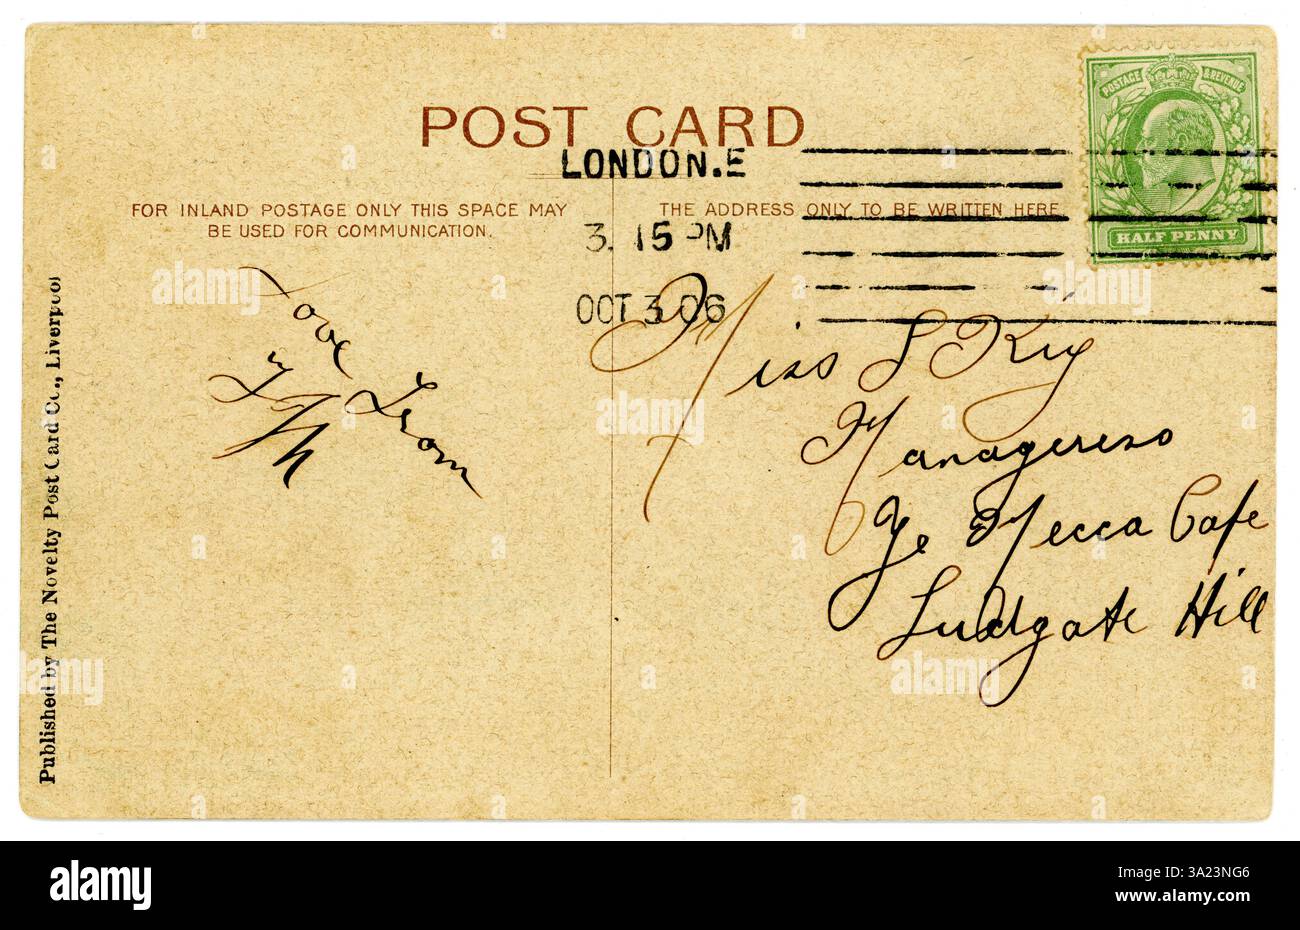 POST CARD
LONDON.E
3. 15 PM
OCT 3 06
POSTAGE & REVENUE
HALF PENNY
FOR INLAND POSTAGE ONLY THIS SPACE MAY
BE USED FOR COMMUNICATION.
THE ADDRESS ONLY TO BE WRITTEN HERE
Published by The Novelty Post Card Co., Liverpool
Love From
Miss L
Manageress
Ye Mecca Cafe
Ludgate Hill
alamy
Image ID: 3A23NG6
www.alamy.com